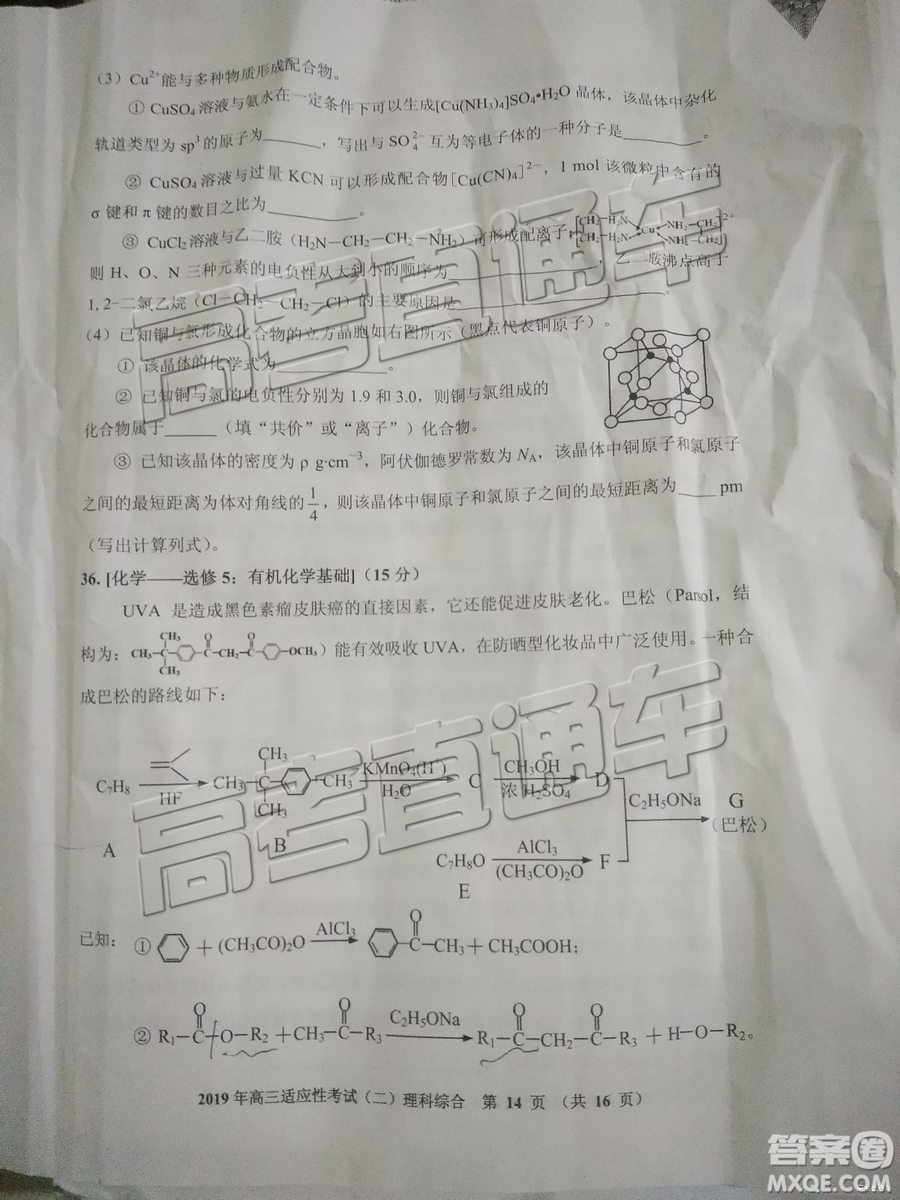 (3) Cu²⁺能与多种物质形成配合物。
① CuSO₄ 溶液与氨水在一定条件下可以生成[Cu(NH₃)₄]SO₄•H₂O 晶体，该晶体中杂化
轨道类型为 sp³的原子为______，写出与 SO₄²⁻ 互为等电子体的一种分子是________。
② CuSO₄ 溶液与过量 KCN 可以形成配合物[Cu(CN)₄]²⁻，1 mol 该微粒中含有的
σ 键和 π 键的数目之比为__________。
③ CuCl₂溶液与乙二胺（H₂N－CH₂－CH₂－NH₂）可形成配离子
CH₂-H₂N Cu NH₂-CH₂ 2+
CH₂-H₂N NH₂-CH₂
则 H、O、N 三种元素的电负性从大到小的顺序为______________，乙二胺沸点高于
1, 2-二氯乙烷（Cl－CH₂－CH₂－Cl）的主要原因是______________。
(4) 已知铜与氯形成化合物的立方晶胞如右图所示（黑点代表铜原子）。
① 该晶体的化学式为____________。
② 已知铜与氯的电负性分别为 1.9 和 3.0，则铜与氯组成的
化合物属于______（填“共价”或“离子”）化合物。
③ 已知该晶体的密度为 ρ g·cm⁻³，阿伏伽德罗常数为 Nᴀ，该晶体中铜原子和氯原子
之间的最短距离为体对角线的 1/4，则该晶体中铜原子和氯原子之间的最短距离为____ pm
(写出计算列式)。
36. [化学——选修 5：有机化学基础]（15 分）
UVA 是造成黑色素瘤皮肤癌的直接因素，它还能促进皮肤老化。巴松（Parsol，结
CH₃ O O
构为：CH₃-C- -C-CH₂-C- -OCH₃）能有效吸收 UVA，在防晒型化妆品中广泛使用。一种合
CH₃
成巴松的路线如下：
CH₃
C₇H₈ HF CH₃-C- -CH₃ KMnO₄(H⁺) H₂O C CH₃OH 浓 H₂SO₄ D
CH₃
C₂H₅ONa G
(巴松)
A B
C₇H₈O AlCl₃ (CH₃CO)₂O F
E
已知：① + (CH₃CO)₂O AlCl₃ O C-CH₃ + CH₃COOH；
② R₁-C(O)-O-R₂ + CH₃-C(O)-R₃ C₂H₅ONa R₁-C(O)-CH₂-C(O)-R₃ + H-O-R₂。
2019 年高三适应性考试（二）理科综合 第 14 页 （共 16 页）
高考直通车
高考直通车
答案圈
MXQE.COM